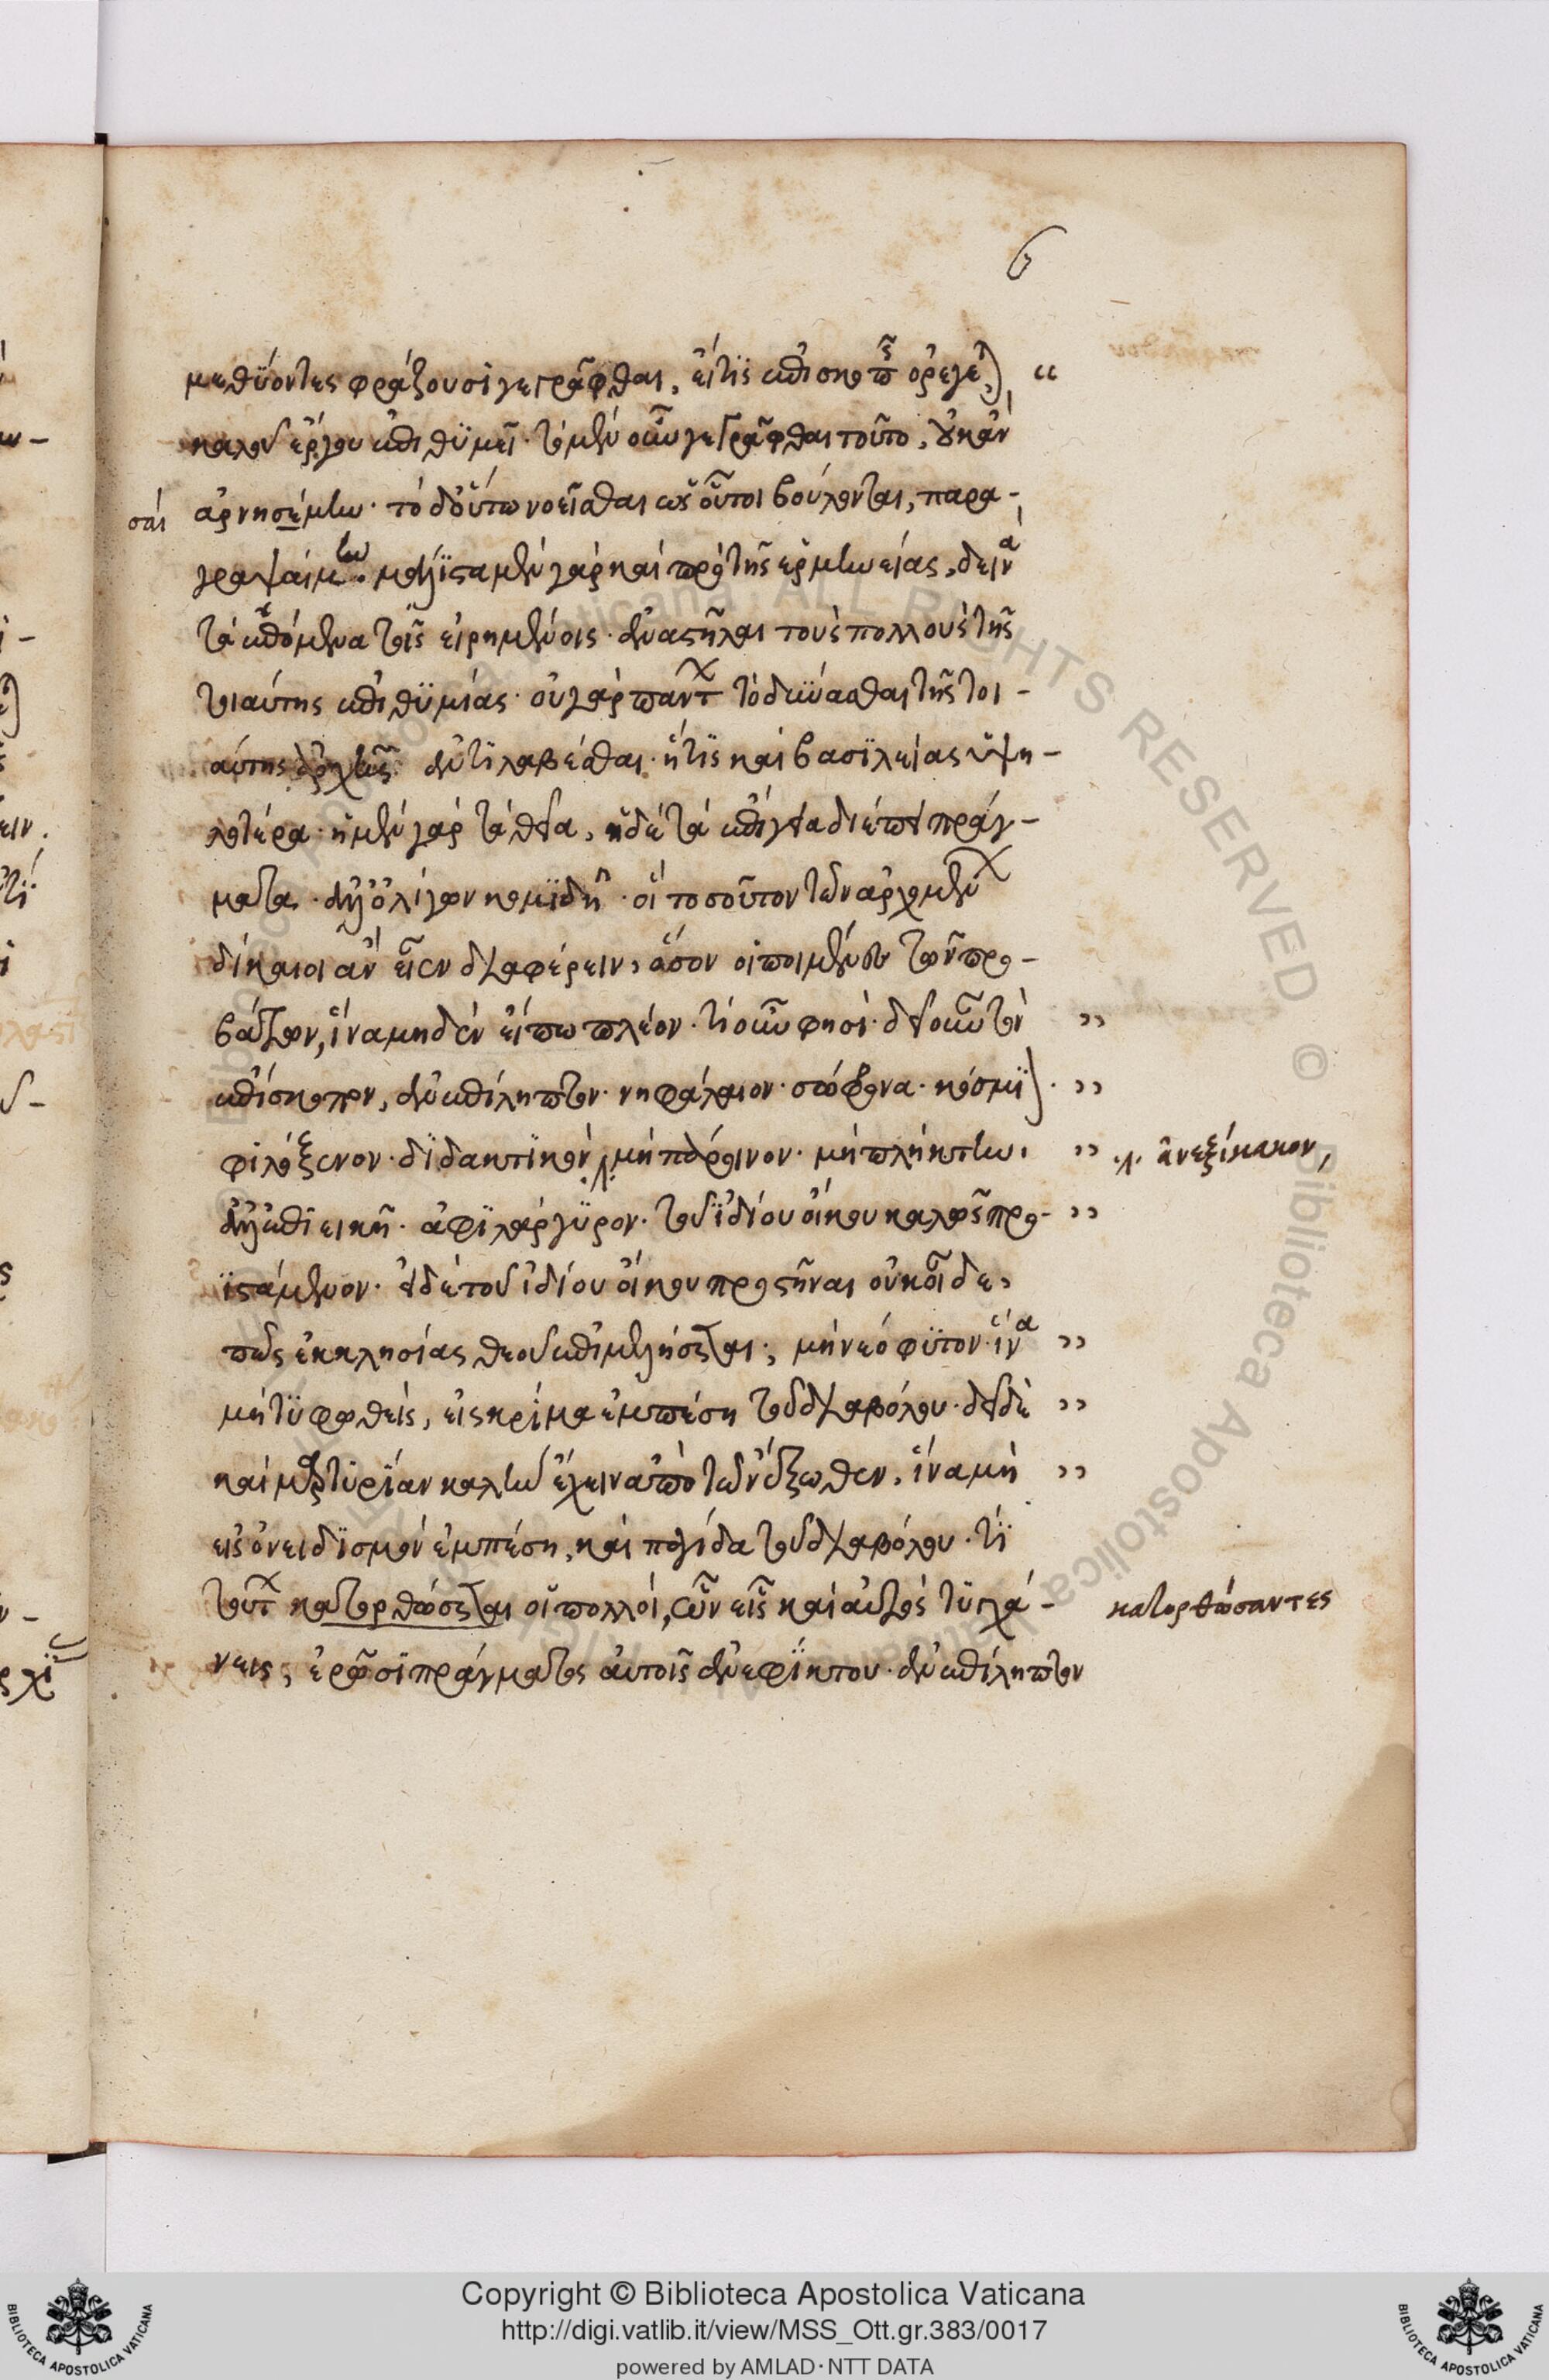 6
μεθύοντες φράζουσι γεγράφθαι, εἴ τις ἐπισκοπῆς ὀρέγεται, “
καλοῦ ἔργου ἐπιθυμεῖ· τὸ μὲν οὖν γεγράφθαι τοῦτο, οὐκ ἂν
σαί
ἀρνησέμην· τὸ δ᾽ οὕτω νοεῖσθαι ὡς οὗτοι βούλονται, παρα-
γραψαίμην· μάλιστα μὲν γὰρ καὶ πρὸ τῆς ἑρμηνείας, δεινὰ
τὰ ἑπόμενα τοῖς εἰρημένοις ἀναστῆλαι τοὺς πολλοὺς τῆς
τοιαύτης ἐπιθυμίας· οὐ γὰρ παντὸς τὸ δύνασθαι τῆς τοι-
αύτης ἀρχῆς ἀντιλαβέσθαι· ἥτις καὶ βασιλείας ὑψη-
λοτέρα· ἡ μὲν γὰρ τὰ θεῖα, ἡ δὲ τὰ ἐπίγεια διέπει πράγ-
ματα· ἀλλ᾽ ὀλίγων κομιδῆ· οἳ τοσοῦτον τῶν ἀρχομένων
δίκαιοι ἂν εἶεν διαφέρειν, ὅσον οἱ ποιμένες τῶν προ-
βάτων, ἵνα μηδὲν εἴπω πλέον· τί οὖν φησί· δεῖ οὖν τὸν ”
ἐπίσκοπον, ἀνεπίληπτον· νηφάλαιον· σώφρονα· κόσμιον· ”
φιλόξενον· διδακτικόν· μὴ πάροινον· μὴ πλήκτην· ” ἀνεξίκακον,
ἀλλ᾽ ἐπιεικῆ· ἀφιλάργυρον· τοῦ ἰδίου οἴκου καλῶς προ- ”
ϊστάμενον· εἰ δέ τοῦ ἰδίου οἴκου προστῆναι οὐκ οἶδε,
πῶς ἐκκλησίας θεοῦ ἐπιμελήσεται; μὴ νεόφυτον· ἵνα ”
μὴ τυφωθεὶς, εἰς κρίμα ἐμπέση τοῦ διαβόλου· δεῖ δὲ ”
καὶ μαρτυρίαν καλὴν ἔχειν ἀπὸ τῶν ἔξωθεν, ἵνα μὴ ”
εἰς ὀνειδισμὸν ἐμπέση, καὶ παγίδα τοῦ διαβόλου· τί
τούτων κατορθώσεται οἱ πολλοί, ὧν εἷς καὶ αὐτὸς τυγχά- κατορθώσαντες
νεις, ἐρῶσι πράγματος αὐτοῖς ἀνεφίκτου· ἀνεπίληπτον
Copyright © Biblioteca Apostolica Vaticana
http://digi.vatlib.it/view/MSS_Ott.gr.383/0017
powered by AMLAD·NTT DATA